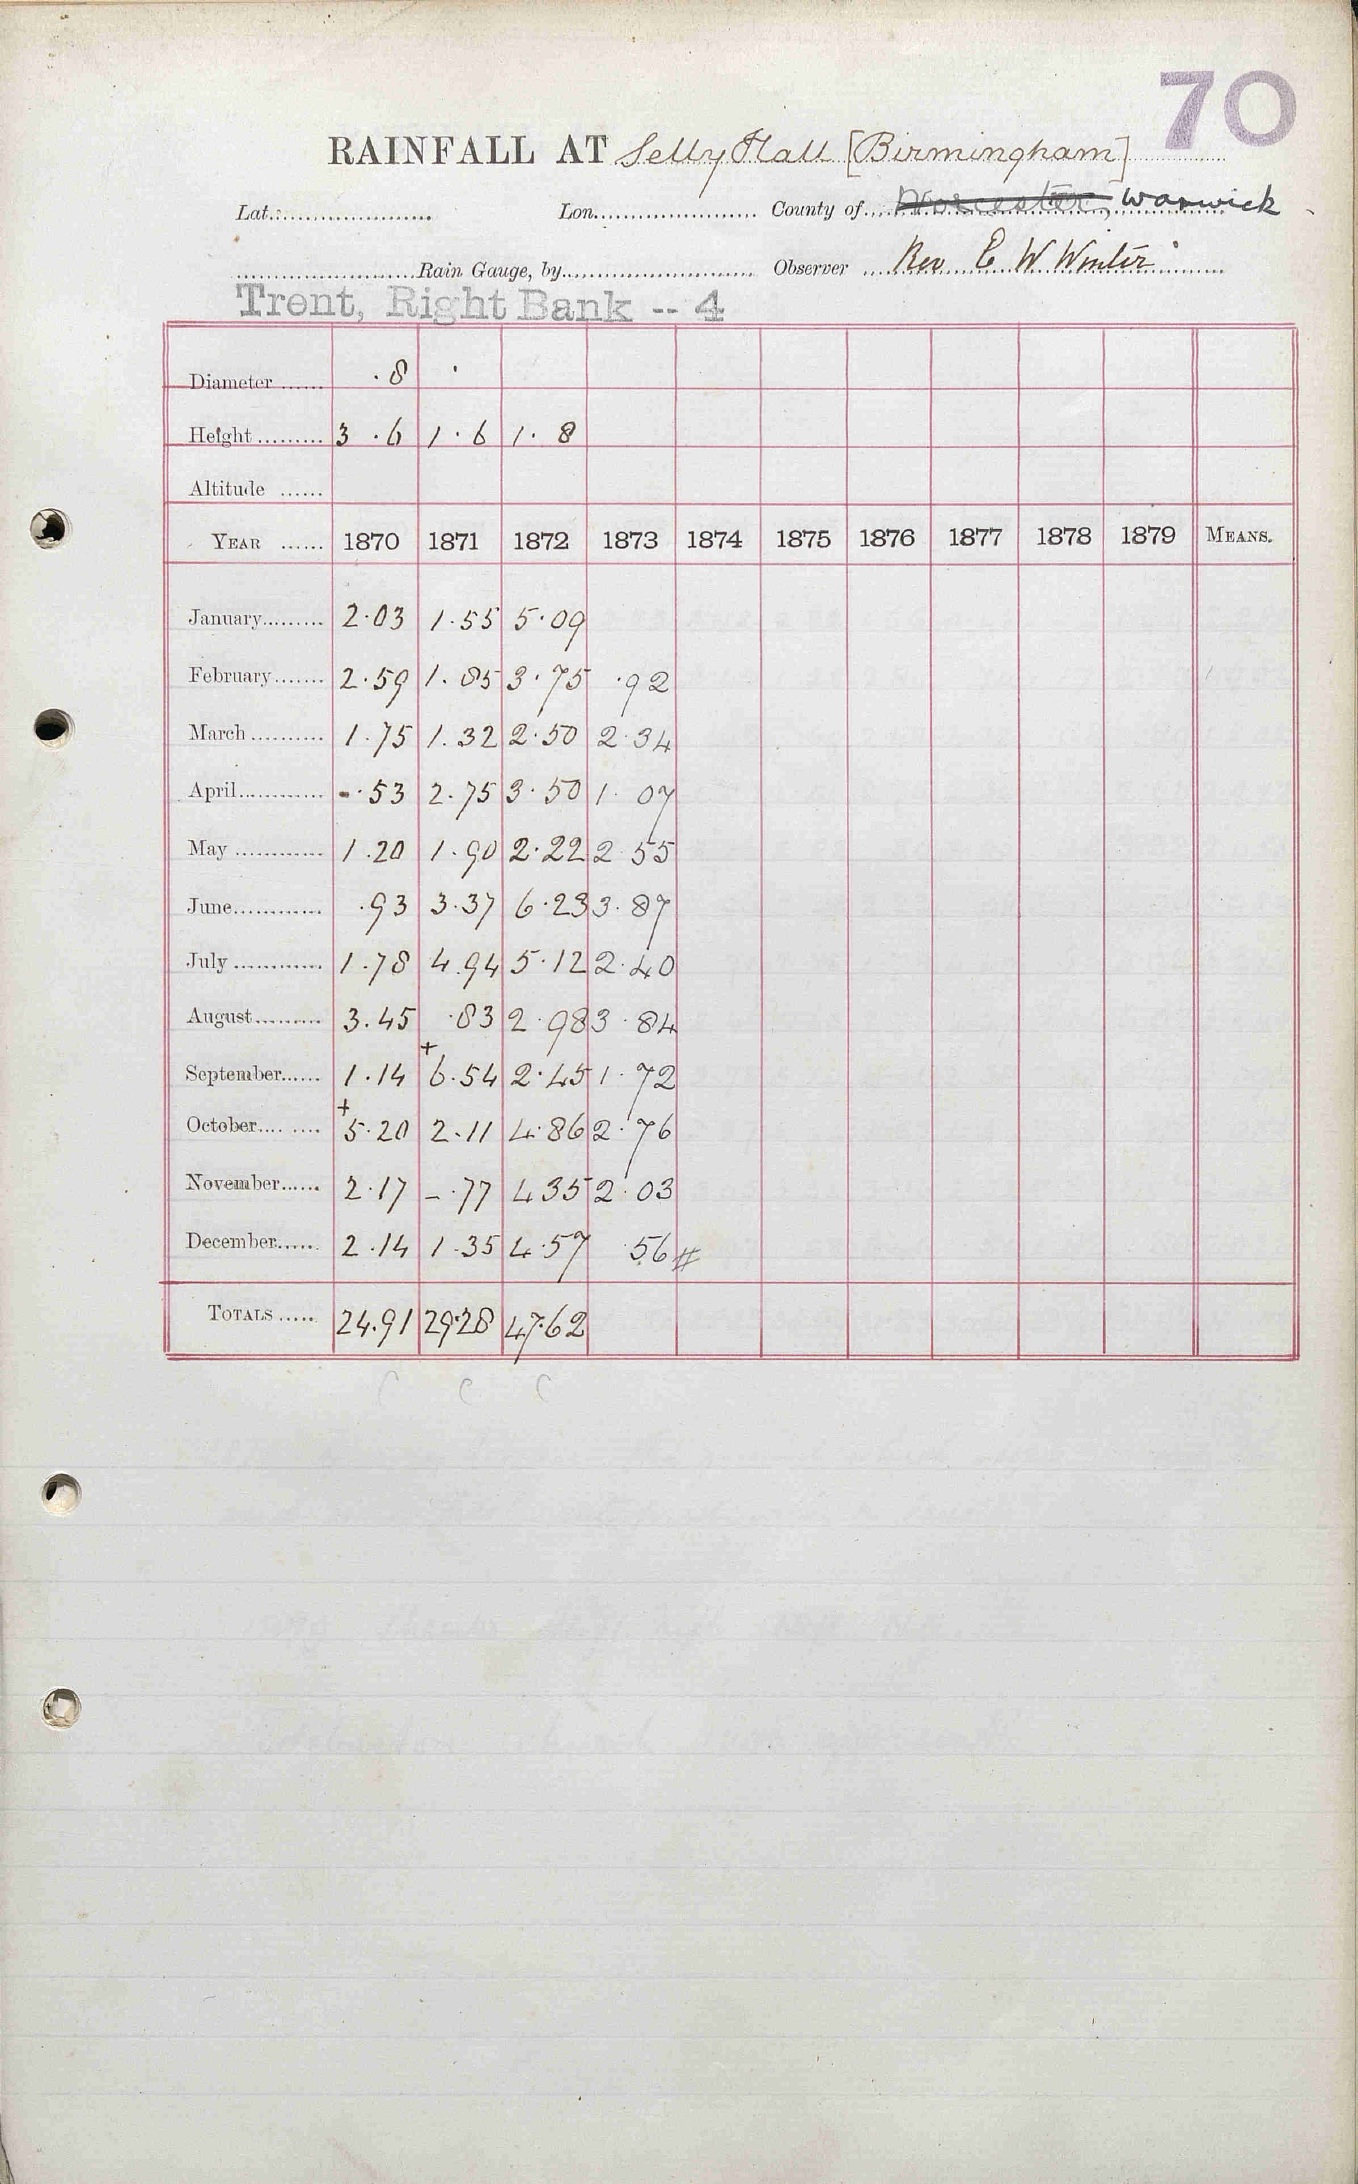 70
RAINFALL AT Selly Hall [Birmingham]
Lat. Lon. County of Worcester, Warwick
Rain Gauge, by Observer Rev E W Winter
Trent, Right Bank -- 4
Diameter ·8 ·
Height 3 ·6 1·6 1·8
Altitude
YEAR 1870 1871 1872 1873 1874 1875 1876 1877 1878 1879 MEANS.
January 2·03 1·55 5·09
February 2·59 1·85 3·75 ·92
March 1·75 1.32 2·50 2·34
April -·53 2·75 3·50 1·07
May 1·20 1·90 2·22 2 55
June ·93 3·37 6·23 3·87
July 1·78 4.94 5·12 2·40
August 3·45 ·83 2·98 3·84
September 1·14 +6·54 2·45 1·72
October +5·20 2·11 4·86 2·76
November 2·17 -·77 4 35 2·03
December 2·14 1·35 4·57 ·56 #
TOTALS 24.91 29·28 47·62
C C C